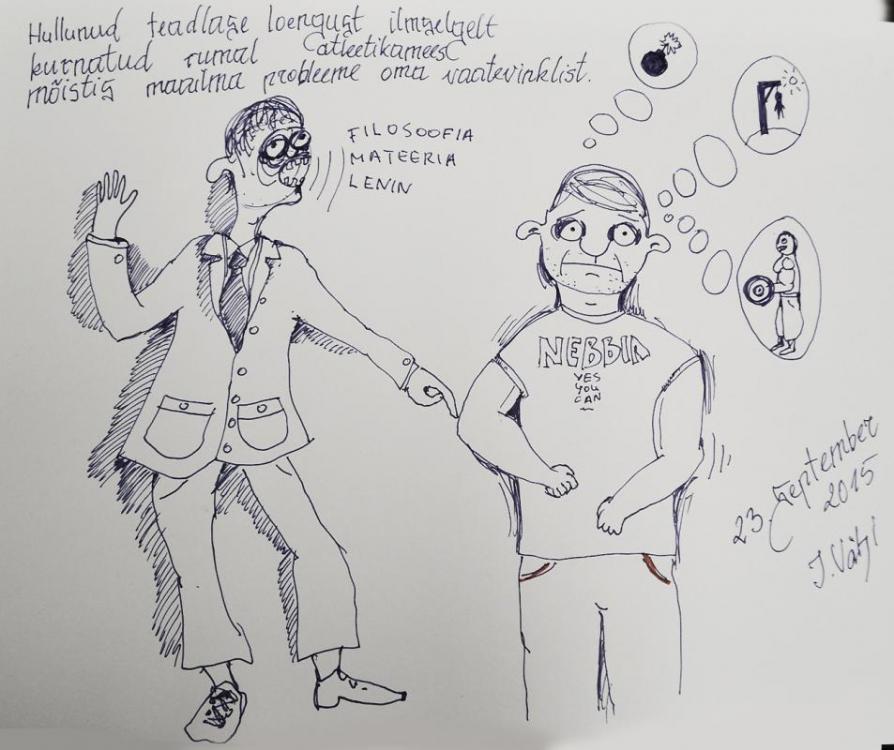 Hullunud teadlase loengust ilmselgelt
kurnatud rumal (atleetikamees)
mõistis maailma probleeme oma vaatevinklist.
FILOSOOFIA
MATEERIA
LENIN
NEBBIA
YES
YOU
CAN
23. September
2015